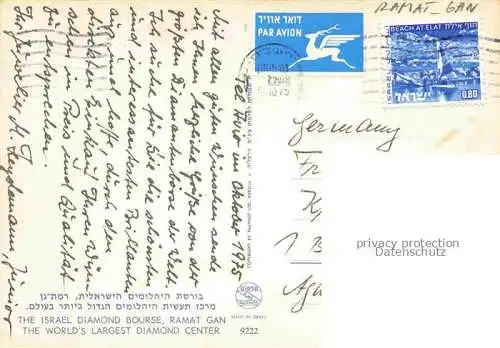 Tel Aviv im Oktober 1975
Mit allen guten Wünschen sende
ich Ihnen herzliche Grüße von der
größten Diamantenbörse der Welt.
Ich suche für Sie die schönsten
und interessantesten Brillanten
aus und hoffe, durch den
Einkauf Ihren Wün-
schen in Preis und Qualität
zu entsprechen.
Ihr Juwelier H. Heydemann, Junior
בורסת היהלומים הישראלית, רמת־גן
מרכז תעשית היהלומים הגדול ביותר בעולם.
THE ISRAEL DIAMOND BOURSE, RAMAT GAN
THE WORLD'S LARGEST DIAMOND CENTER
9222
MADE IN ISRAEL
דואר אוויר
PAR AVION
RAMAT GAN
BEACH AT ELAT חוף אילת
ISRAEL
ישראל
0.80
Germany
1 B
privacy protection
Datenschutz